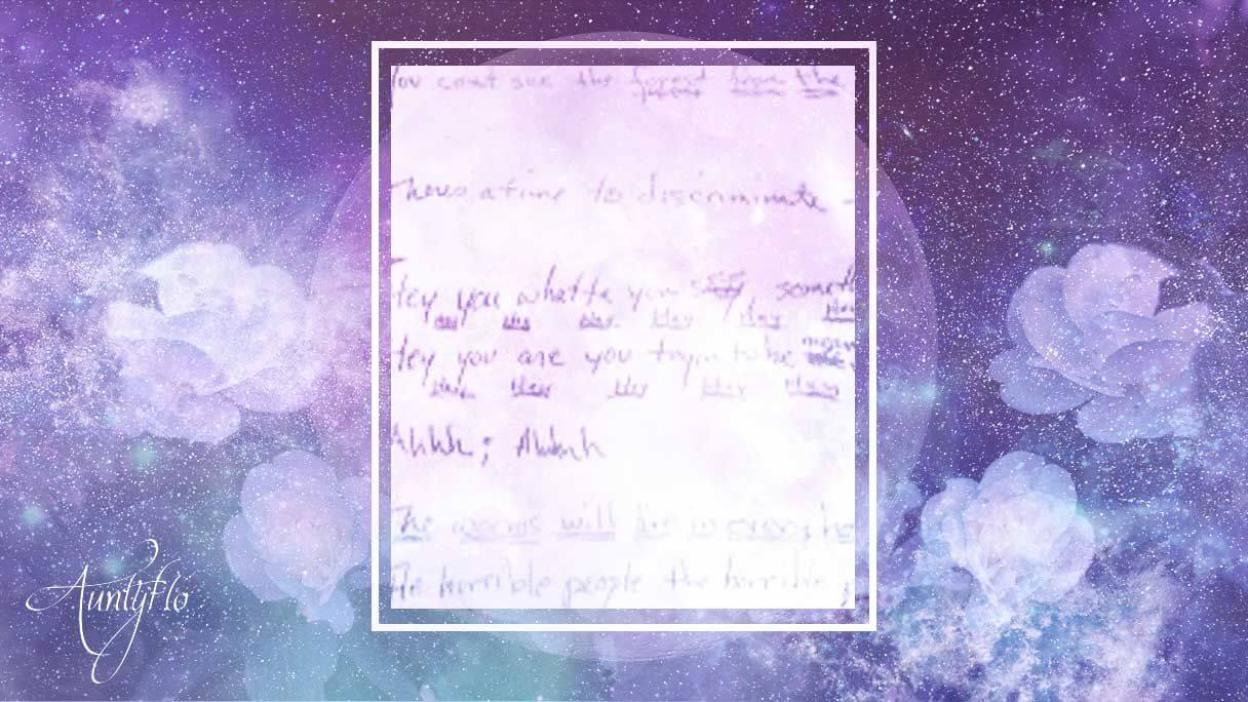 You cant see the forest from the
Theres a time to discriminate -
Hey you whatte you say
Hey Hey Hey Hey Hey Hey
Hey you are you tryin to be
Hey Hey Hey Hey Hey
Ahhh; Ahhhh
The worms will live in every
The horrible people the horrible
AuntyFlo